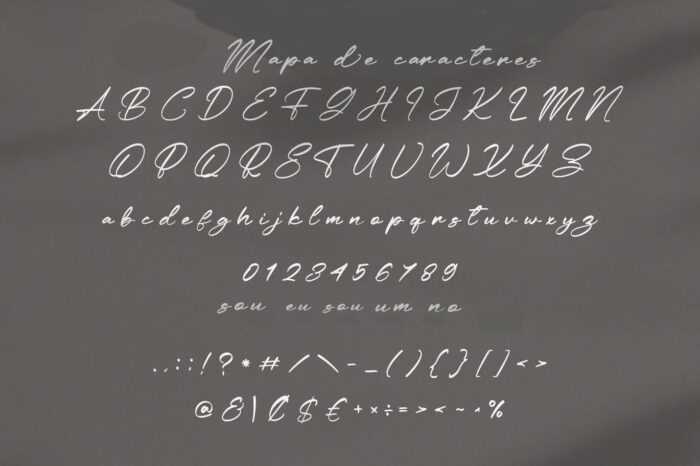 Mapa de caracteres
A B C D E F G H I J K L M N
O P Q R S T U V W X Y Z
a b c d e f g h i j k l m n o p q r s t u v w x y z
0 1 2 3 4 5 6 7 8 9
sou eu sou um no
. , : ; ! ? * # / \ - _ ( ) { } [ ] < >
@ & | ₡ $ € + × ÷ = > < ~ ^ %